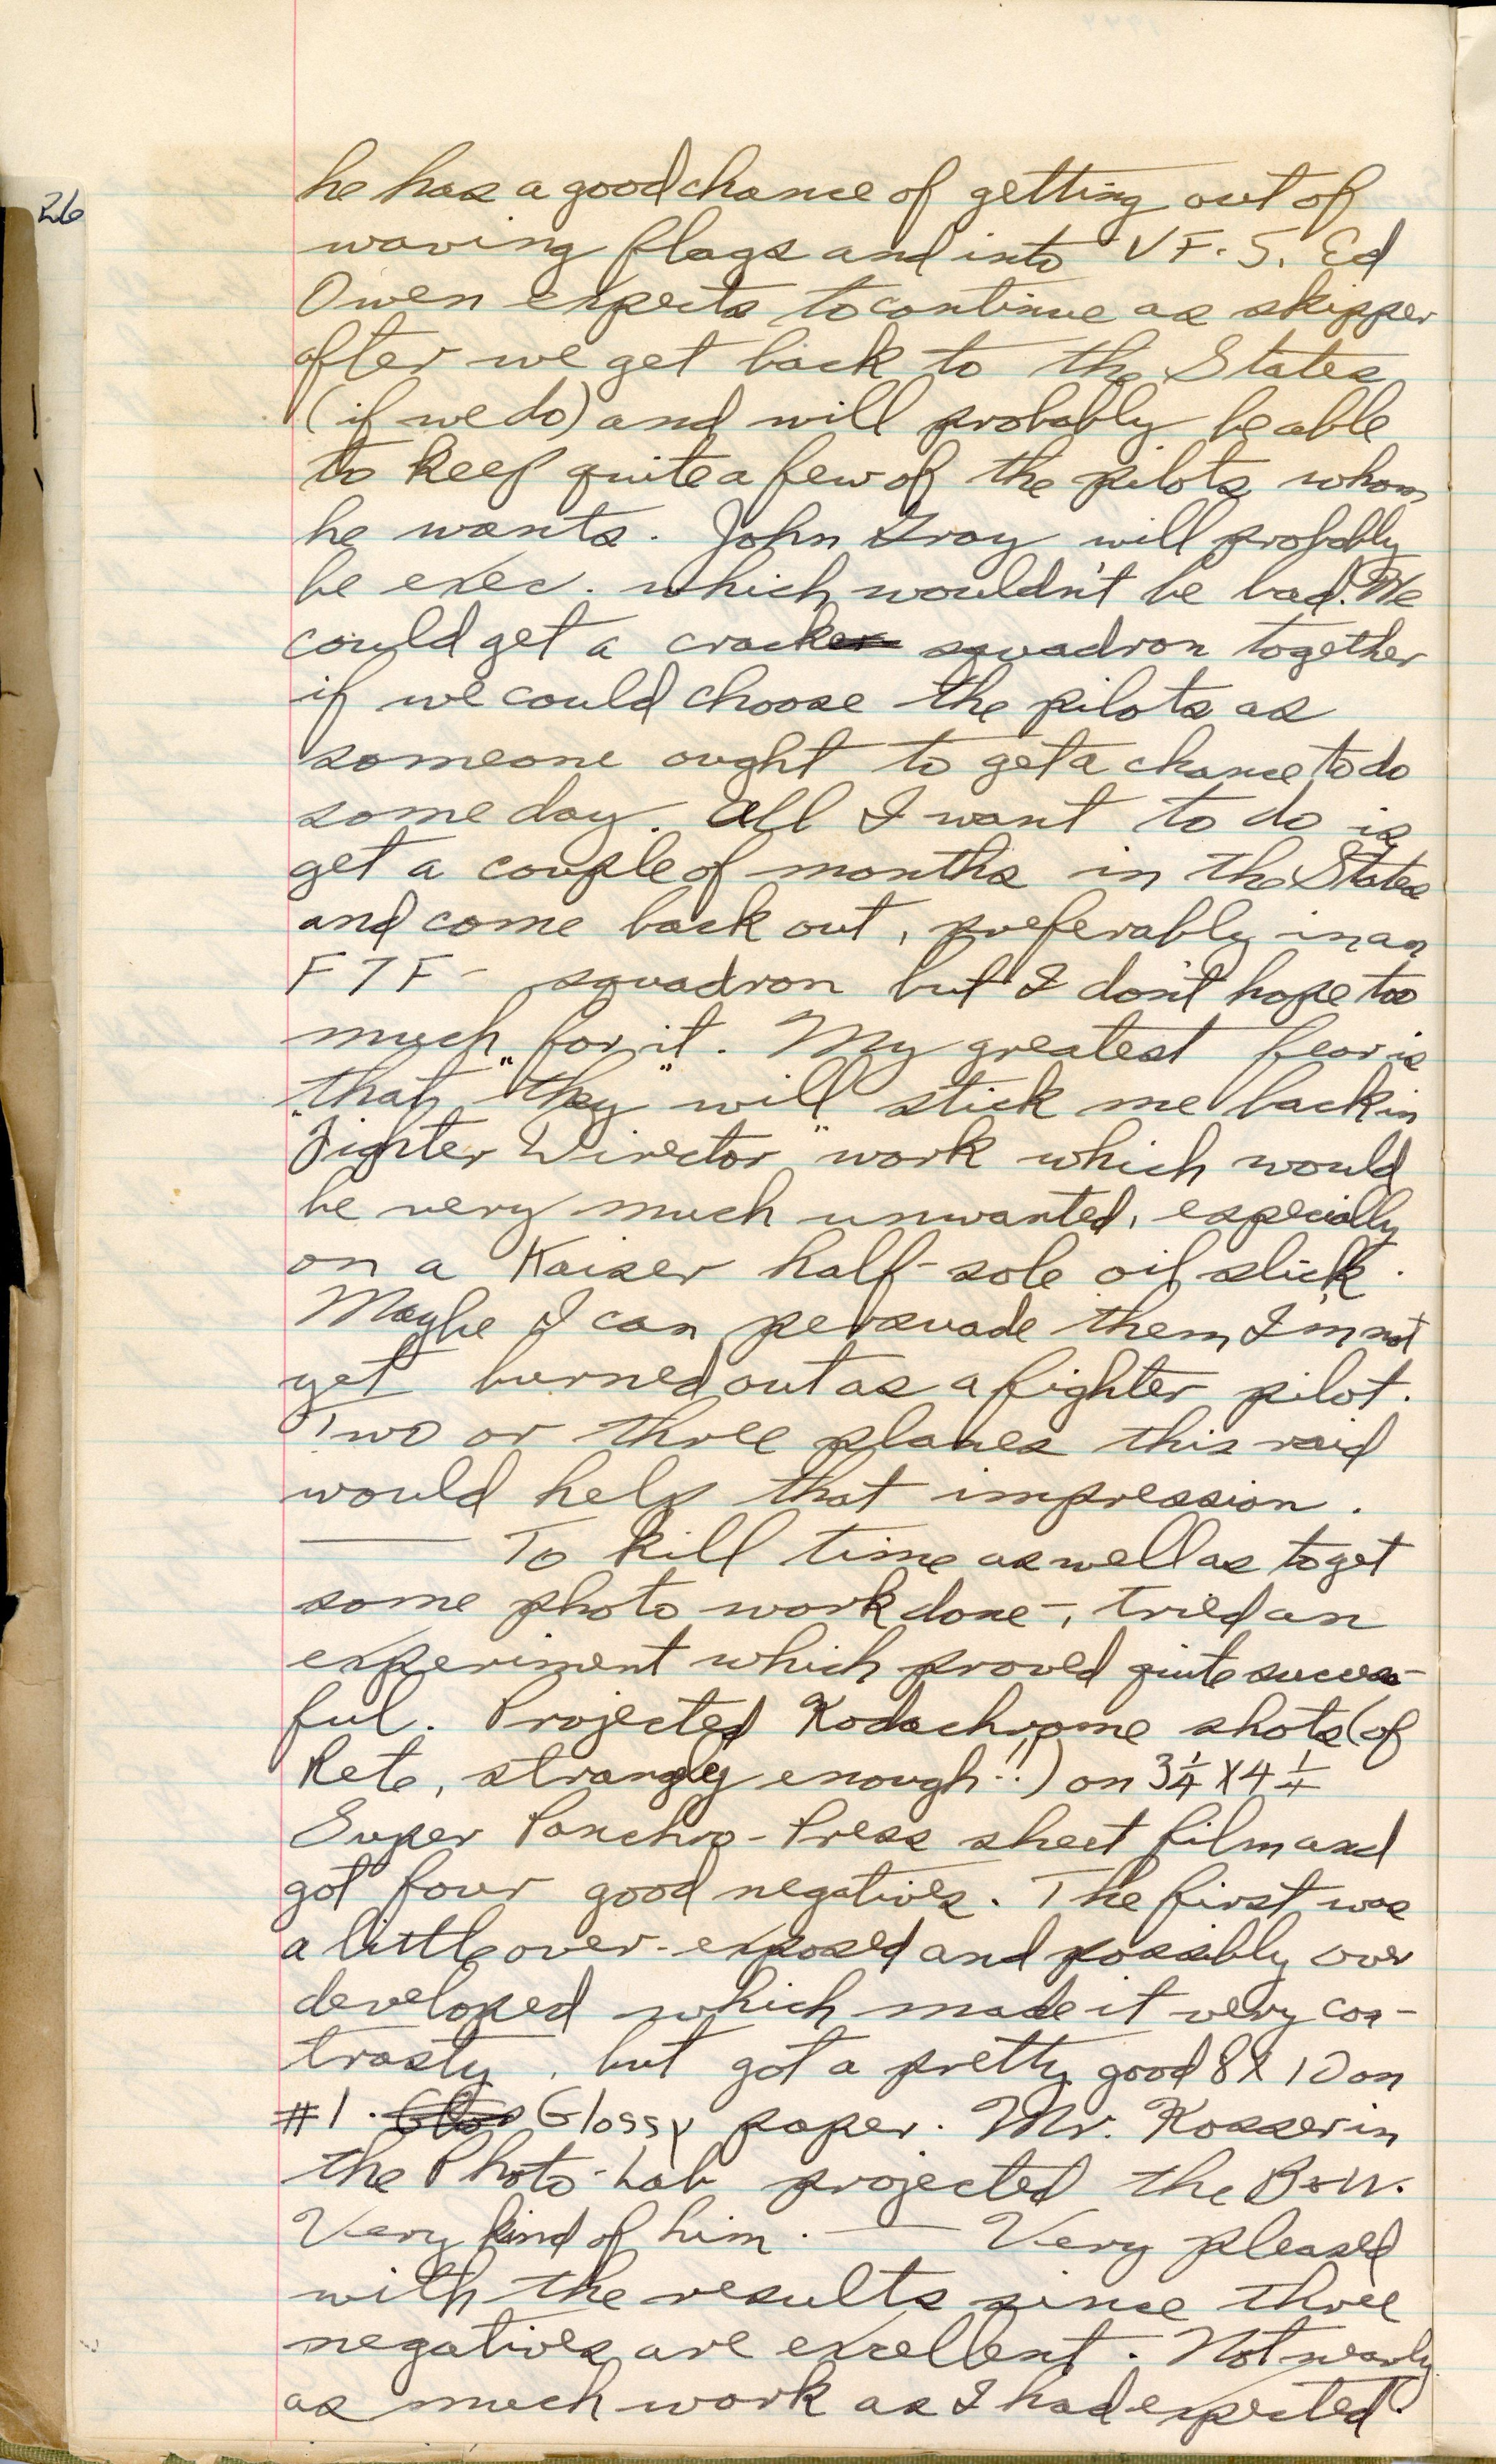 26
he has a good chance of getting out of
waving flags and into VF-5. Ed
Owen expects to continue as skipper
after we get back to the States
(if we do) and will probably be able
to keep quite a few of the pilots whom
he wants. John Gray will probably
be exec. which wouldn't be bad. We
could get a cracker squadron together
if we could choose the pilots as
someone ought to get a chance to do
some day. All I want to do is
get a couple of months in the States
and come back out, preferably in an
F7F- squadron but I don't hope too
much for it. My greatest fear is
that "they" will stick me back in
"Fighter Director" work which would
be very much unwanted, especially
on a Kaiser half-sole oil slick.
Maybe I can persuade them I'm not
yet burned out as a fighter pilot.
Two or three planes this raid
would help that impression.
—— To kill time as well as to get
some photo work done-, tried an
experiment which proved quite success-
ful. Projected Kodachrome shots (of
Pete, strangely enough!!) on 3¼ X 4¼
Super Panchro-Press sheet film and
got four good negatives. The first was
a little over-exposed and possibly over
developed which made it very con-
trasty, but got a pretty good 8 X 10 on
#1. Glossy paper. Mr. Kosser in
the Photo-Lab projected the B+W.
Very kind of him. —— Very pleased
with the results since three
negatives are excellent. Not nearly
as much work as I had expected.